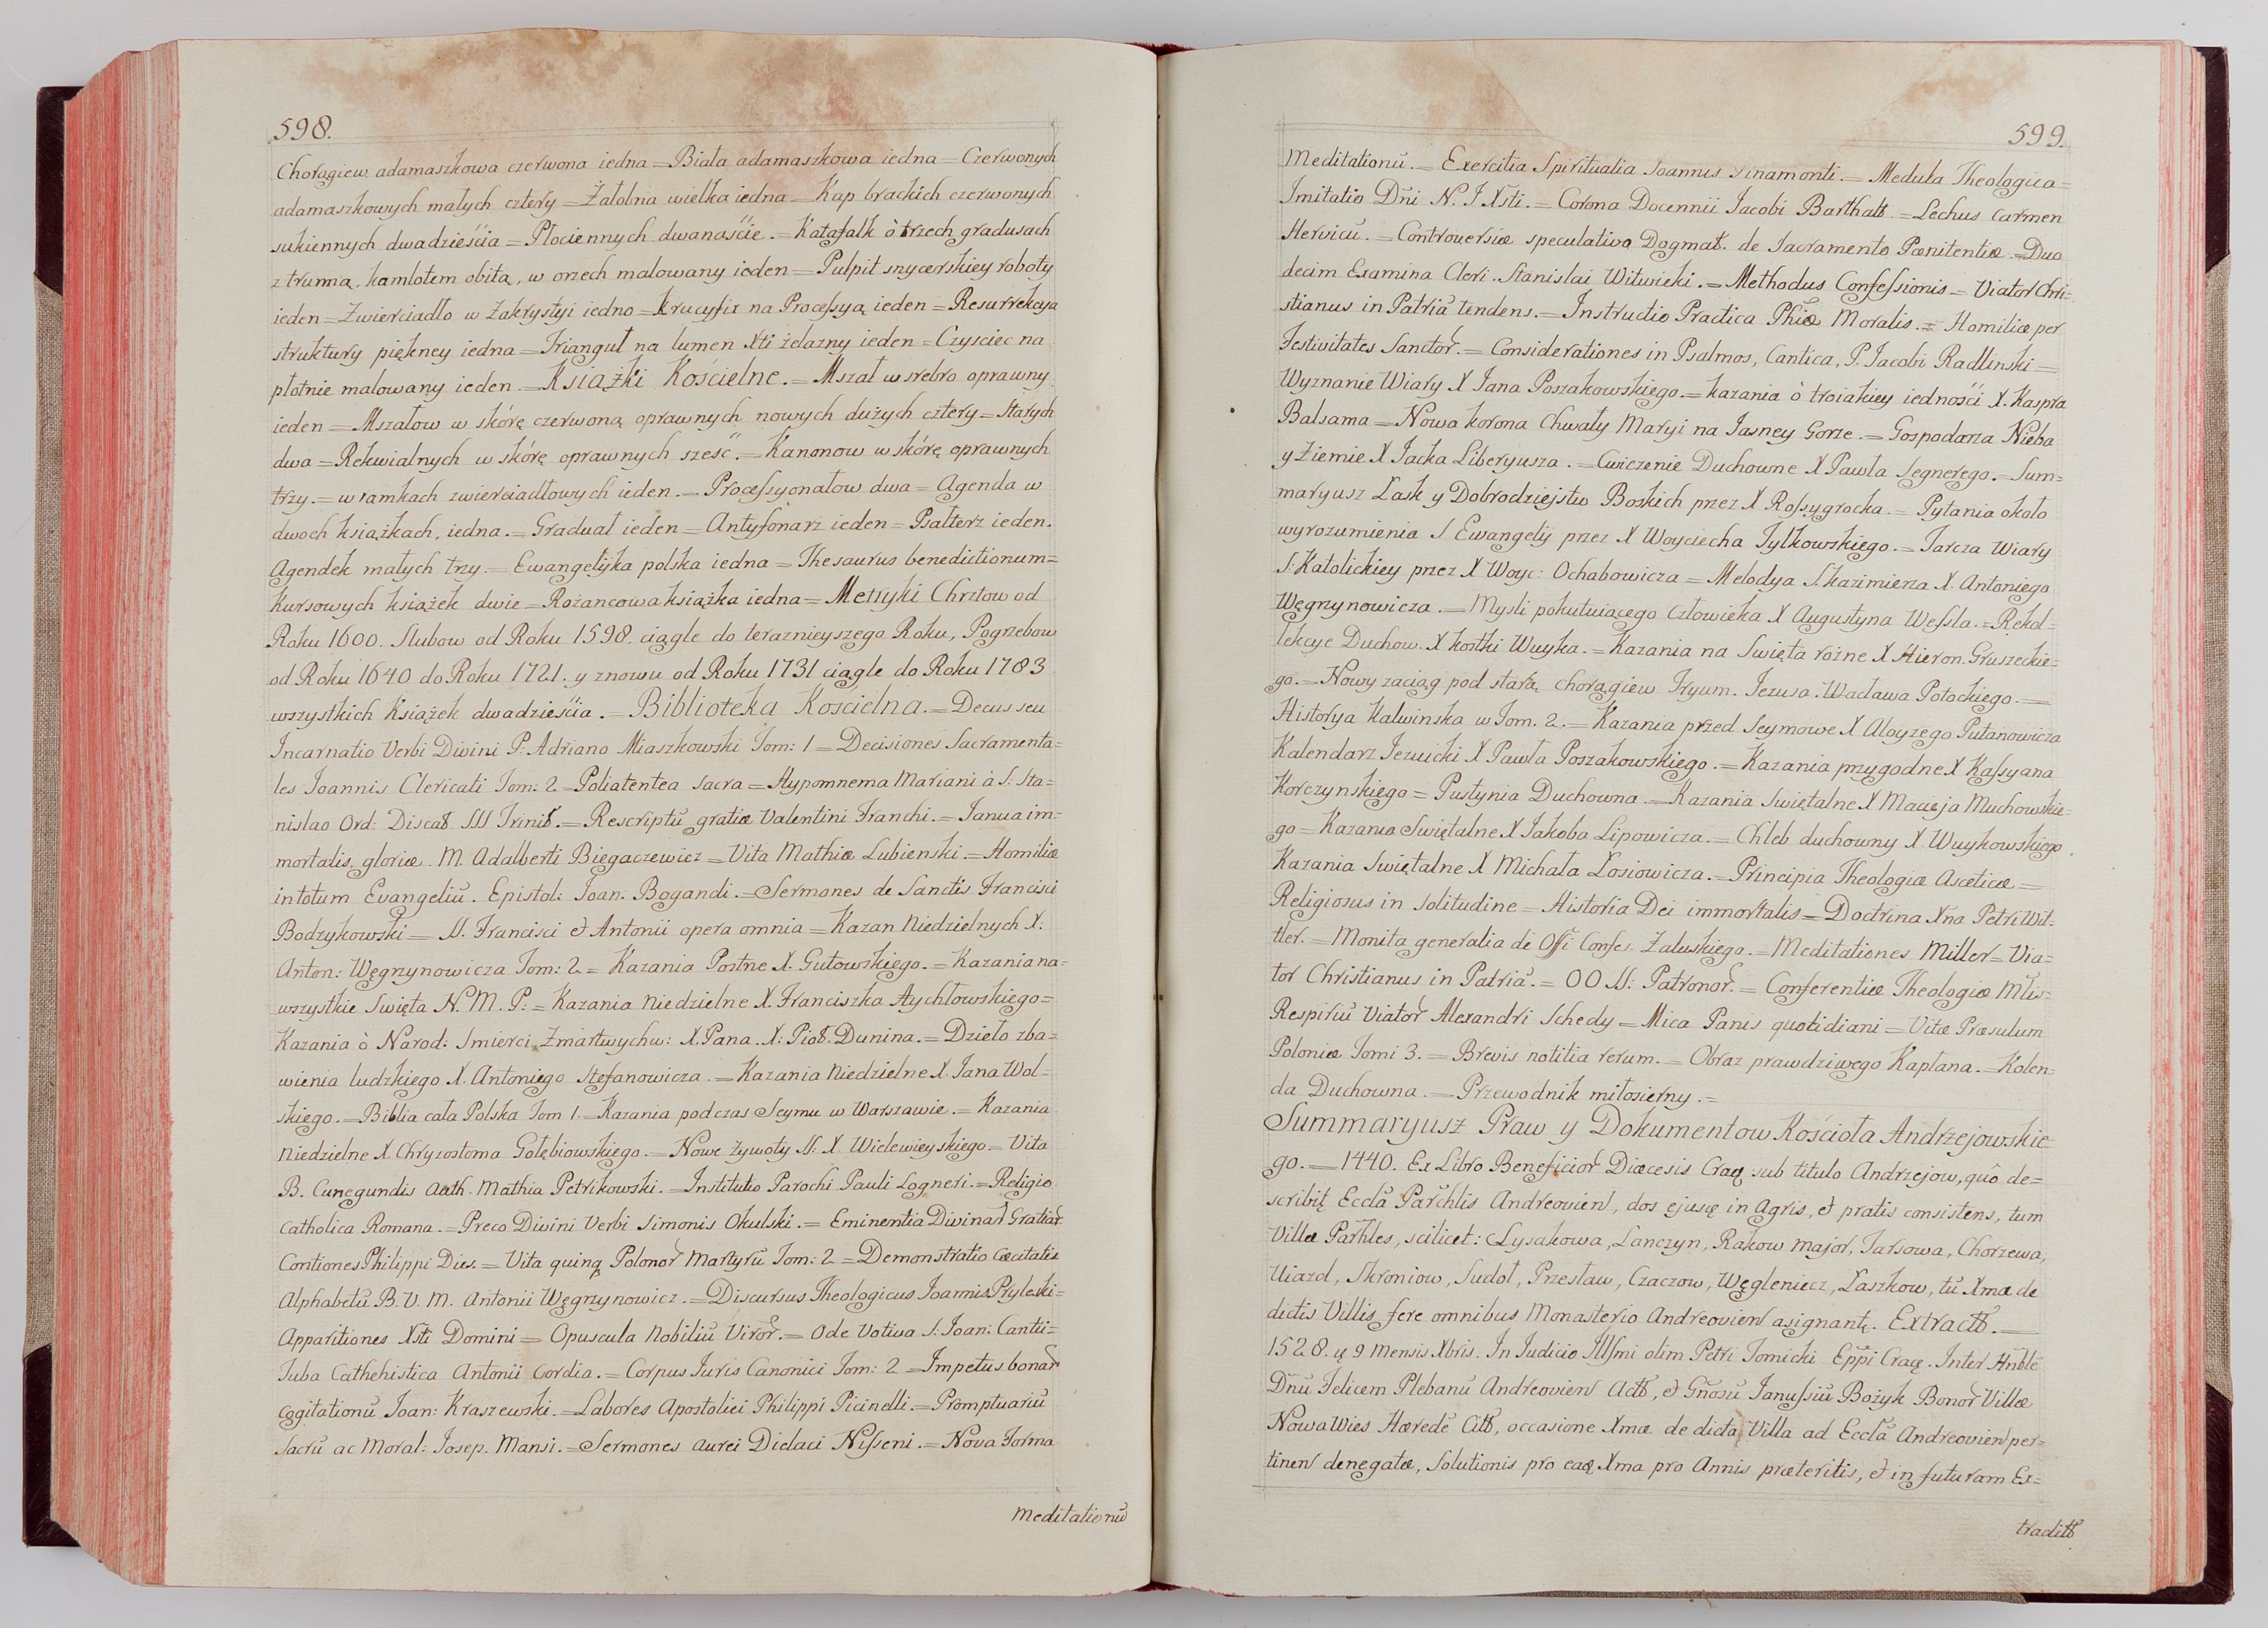 598.
Chorągiew adamaszkowa czerwona iedna = Biała adamaszkowa iedna = Czerwonych
adamaszkowych małych cztery = Żałobna wielka iedna = Kap brackich czerwonych
sukiennych dwadzieścia = Płociennych dwanaście. = Katafalk ò trzech gradusach
z trumną, kamlotem obitą, w orzech malowany ieden = Pulpit snycerskiey roboty
ieden = Zwierciadło w Zakrystyi iedno = krucyfix na Processyą ieden = Resurrekcya
struktury piękney iedna = Tryangul na lumen Xti żelazny ieden = Czysciec na
płotnie malowany ieden = Ksiażki Kościelne. = Mszał w srebro oprawny
ieden = Mszałow w skórę czerwoną oprawnych nowych dużych cztery = Starych
dwa = Rekwialnych w skórę oprawnych sześć. = Kanonow w skórę oprawnych
trzy. = w ramkach zwierciadłowych ieden. = Processyonałow dwa = Agenda w
dwoch książkach, iedna. = Graduał ieden = Antyfonarz ieden = Psałterz ieden.
Agendek małych trzy. = Ewangelijka polska iedna = Thesaurus benedictionum =
Kursowych książek dwie = Rożancowa książka iedna = Metryki Chrztow od
Roku 1600. Slubow od Roku 1598. ciągle do teraznieyszego Roku, Pogrzebow
od Roku 1640 do Roku 1721. y znowu od Roku 1731 ciągle do Roku 1783
wszystkich Książek dwadzieścia. = Biblioteka Koscielna. = Decus seu
Incarnatio Verbi Divini P. Adriano Miaszkowski Tom: 1 = Decisiones Sacramenta=
les Joannis Clericati Tom: 2 = Poliatentea sacra = Hypomnema Mariani à S: Sta=
nislao Ord: Discal. SSS Trinit. = Rescriptũ gratiæ Valentini Franchi. = Janua im=
mortalis gloriæ M. Adalberti Biegaczewicz = Vita Mathiæ Lubienski. = Homiliæ
in totum Evangeliũ. Epistol: Joan: Bogandi. = Sermones de Sanctis Francisci
Bodzykowski = SS. Francisci et Antonii opera omnia = Kazan Niedzielnych X:
Anton: Węgrzynowicza Tom: 2 = Kazania Postne X. Gutowskiego. = Kazania na=
wszystkie Swięta N. M. P: = Kazania niedzielne X. Franciszka Rychłowskiego =
Kazania ò Narod: Smierci, Zmartwychw: X. Pana. X: Piotr. Dunina. = Dzieło zba=
wienia ludzkiego X. Antoniego Stefanowicza. = Kazania niedzielne X. Jana Wol=
skiego. = Biblia cała Polska Tom 1. = Kazania podczas Seymu w Warszawie. = Kazania
niedzielne X. Chryzostoma Gołębiowskiego. = Nowe żywoty SS: X. Wielewieyskiego = Vita
B. Cunegundis Auth. Mathia Petrikowski. = Institutio Parochi Pauli Logneri. = Religio
Catholica Romana. = Preco Divini Verbi Simonis Okulski. = Eminentia Divinar Gratiar
Contiones Philippi Dies. = Vita quinq Polonor Martyrũ Tom: 2 = Demonstratio Cæcitatis
Alphabetũ B. V. M. Antonii Węgrzynowicz. = Discursus Theologicus Joannis Pryleski =
Apparitiones Xsti Domini = Opuscula Nobiliũ Viror. = Ode Votiva S: Joan: Cantii =
Tuba Cathehistica Antonii Cordia. = Corpus Juris Canonici Tom: 2 = Impetus bonar
Cogitationũ Joan: Kraszewski. = Labores Apostolici Philippi Picinelli. = Promptuariũ
Sacrũ ac Moral: Josep. Mansi. = Sermones Aurei Dielaci Nisseni. = Nova Forma
Meditationũ
599.
Meditationũ. = Exercitia Spiritualia Joannis Pinamonti. = Medulla Theologica =
Imitatio Dñi N. J Xsti. = Corona Docennii Jacobi Barthalt = Lechus Carmen
Hervicũ. = Controuersiæ speculativo Dogmat. de Sacramento Pænitentiæ. = Duo
decim Examina Cleri. Stanislai Witwicki. = Methodus Confessionis = Viator Chri=
stianus in Patriã tendens. = Instructio Practica Phiæ Moralis. = Homiliæ per
Festivitates Sanctor. = Considerationes in Psalmos, Cantica, P. Jacobi Radlinski =
Wyznanie Wiary X Jana Poszakowskiego. = kazania ò troiakiey iedności X. Kaspra
Balsama = Nowa korona Chwały Maryi na Jasney Gorze. = Gospodarza Nieba
y Ziemie X Jacka Liberyusza. = Cwiczenie Duchowne X Pawła Segnerego. = Sum=
maryusz Łask y Dobrodziejstw Boskich przez X Rossygrocka. = Pytania około
wyrozumienia S Ewangelij przez X Woyciecha Tylkowskiego. = Tarcza Wiary
S. Katolickiey przez X Woyc: Ochabowicza = Melodya S. kazimierza X. Antoniego
Węgrzynowicza. = Mysli pokutuiącego Człowieka X Augustyna Wessla. = Rekol=
lekcye Duchow. X kostki Wuyka. = Kazania na Swięta rożne X Hieron. Gruszeckie=
go. = Nowy zaciąg pod starą chorągiew Tryum. Jezusa. Wacława Potockiego. =
Historya Kalwinska w Tom. 2. = Kazania przed Seymowe X Aloyzego Putanowicza
Kalendarz Jezuicki X Pawła Poszakowskiego. = Kazania przygodne X Kassyana
Korczynskiego = Pustynia Duchowna. = Kazania Swiętalne X Macieja Muchowskie=
go = Kazania Swiętalne X Jakoba Lipowicza. = Chleb duchowny X. Wuykowskiego.
Kazania Swiętalne X Michała Łosiowicza. = Principia Theologiæ Asceticæ =
Religiosus in solitudine = Historia Dei immortalis = Doctrina Xna Petri Wit=
tler. = Monita generalia de Offi Confes. Załuskiego. = Meditationes Miller = Via=
tor Christianus in Patriã. = OO SS: Patronor. = Conferentiæ Theologiæ Mlis =
Respiriũ Viator Alexandri Schedy = Mica Panis quotidiani = Vitæ Præsulum
Poloniæ Tomi 3. = Brevis notitia rerum. = Obraz prawdziwego Kapłana. = Kolen=
da Duchowna. = Przewodnik miłosierny. =
Summaryusz Praw y Dokumentow Kościoła Andrzejowskie=
go. = 1440. Ex Libro Beneficior Diæcesis Craq sub titulo Andrzejow, quô de=
scribit Ecclã Parchlis Andreovien, dos ejusq in Agris, et pratis consistens, tum
Villæ Parhles, scilicet: Łysakowa, Lanczyn, Rakow major, Tarsowa, Chorzewa,
Uiazd, Skroniow, Sudoł, Przesław, Czaczow, Węgleniecz, Łaszkow, tũ Xmæ de
dictis Villis fere omnibus Monasterio Andreovien asignant. Extractt. =
1528. ų 9 Mensis Xbris. In Judicio Illsmi olim Petri Tomicki Eppi Craq. Inter Hñble
Dnũ Felicem Plebanũ Andreovien Actt, et Gñosũ Janussiũ Bożyk Bonor Villæ
Nowawies Hæredẽ Citt, occasione Xmæ de dicta Villa ad Ecclã Andreovien per=
tinen denegatæ, Solutionis pro eaq Xma pro Annis præteritis, et in futuram Ex=
traditt